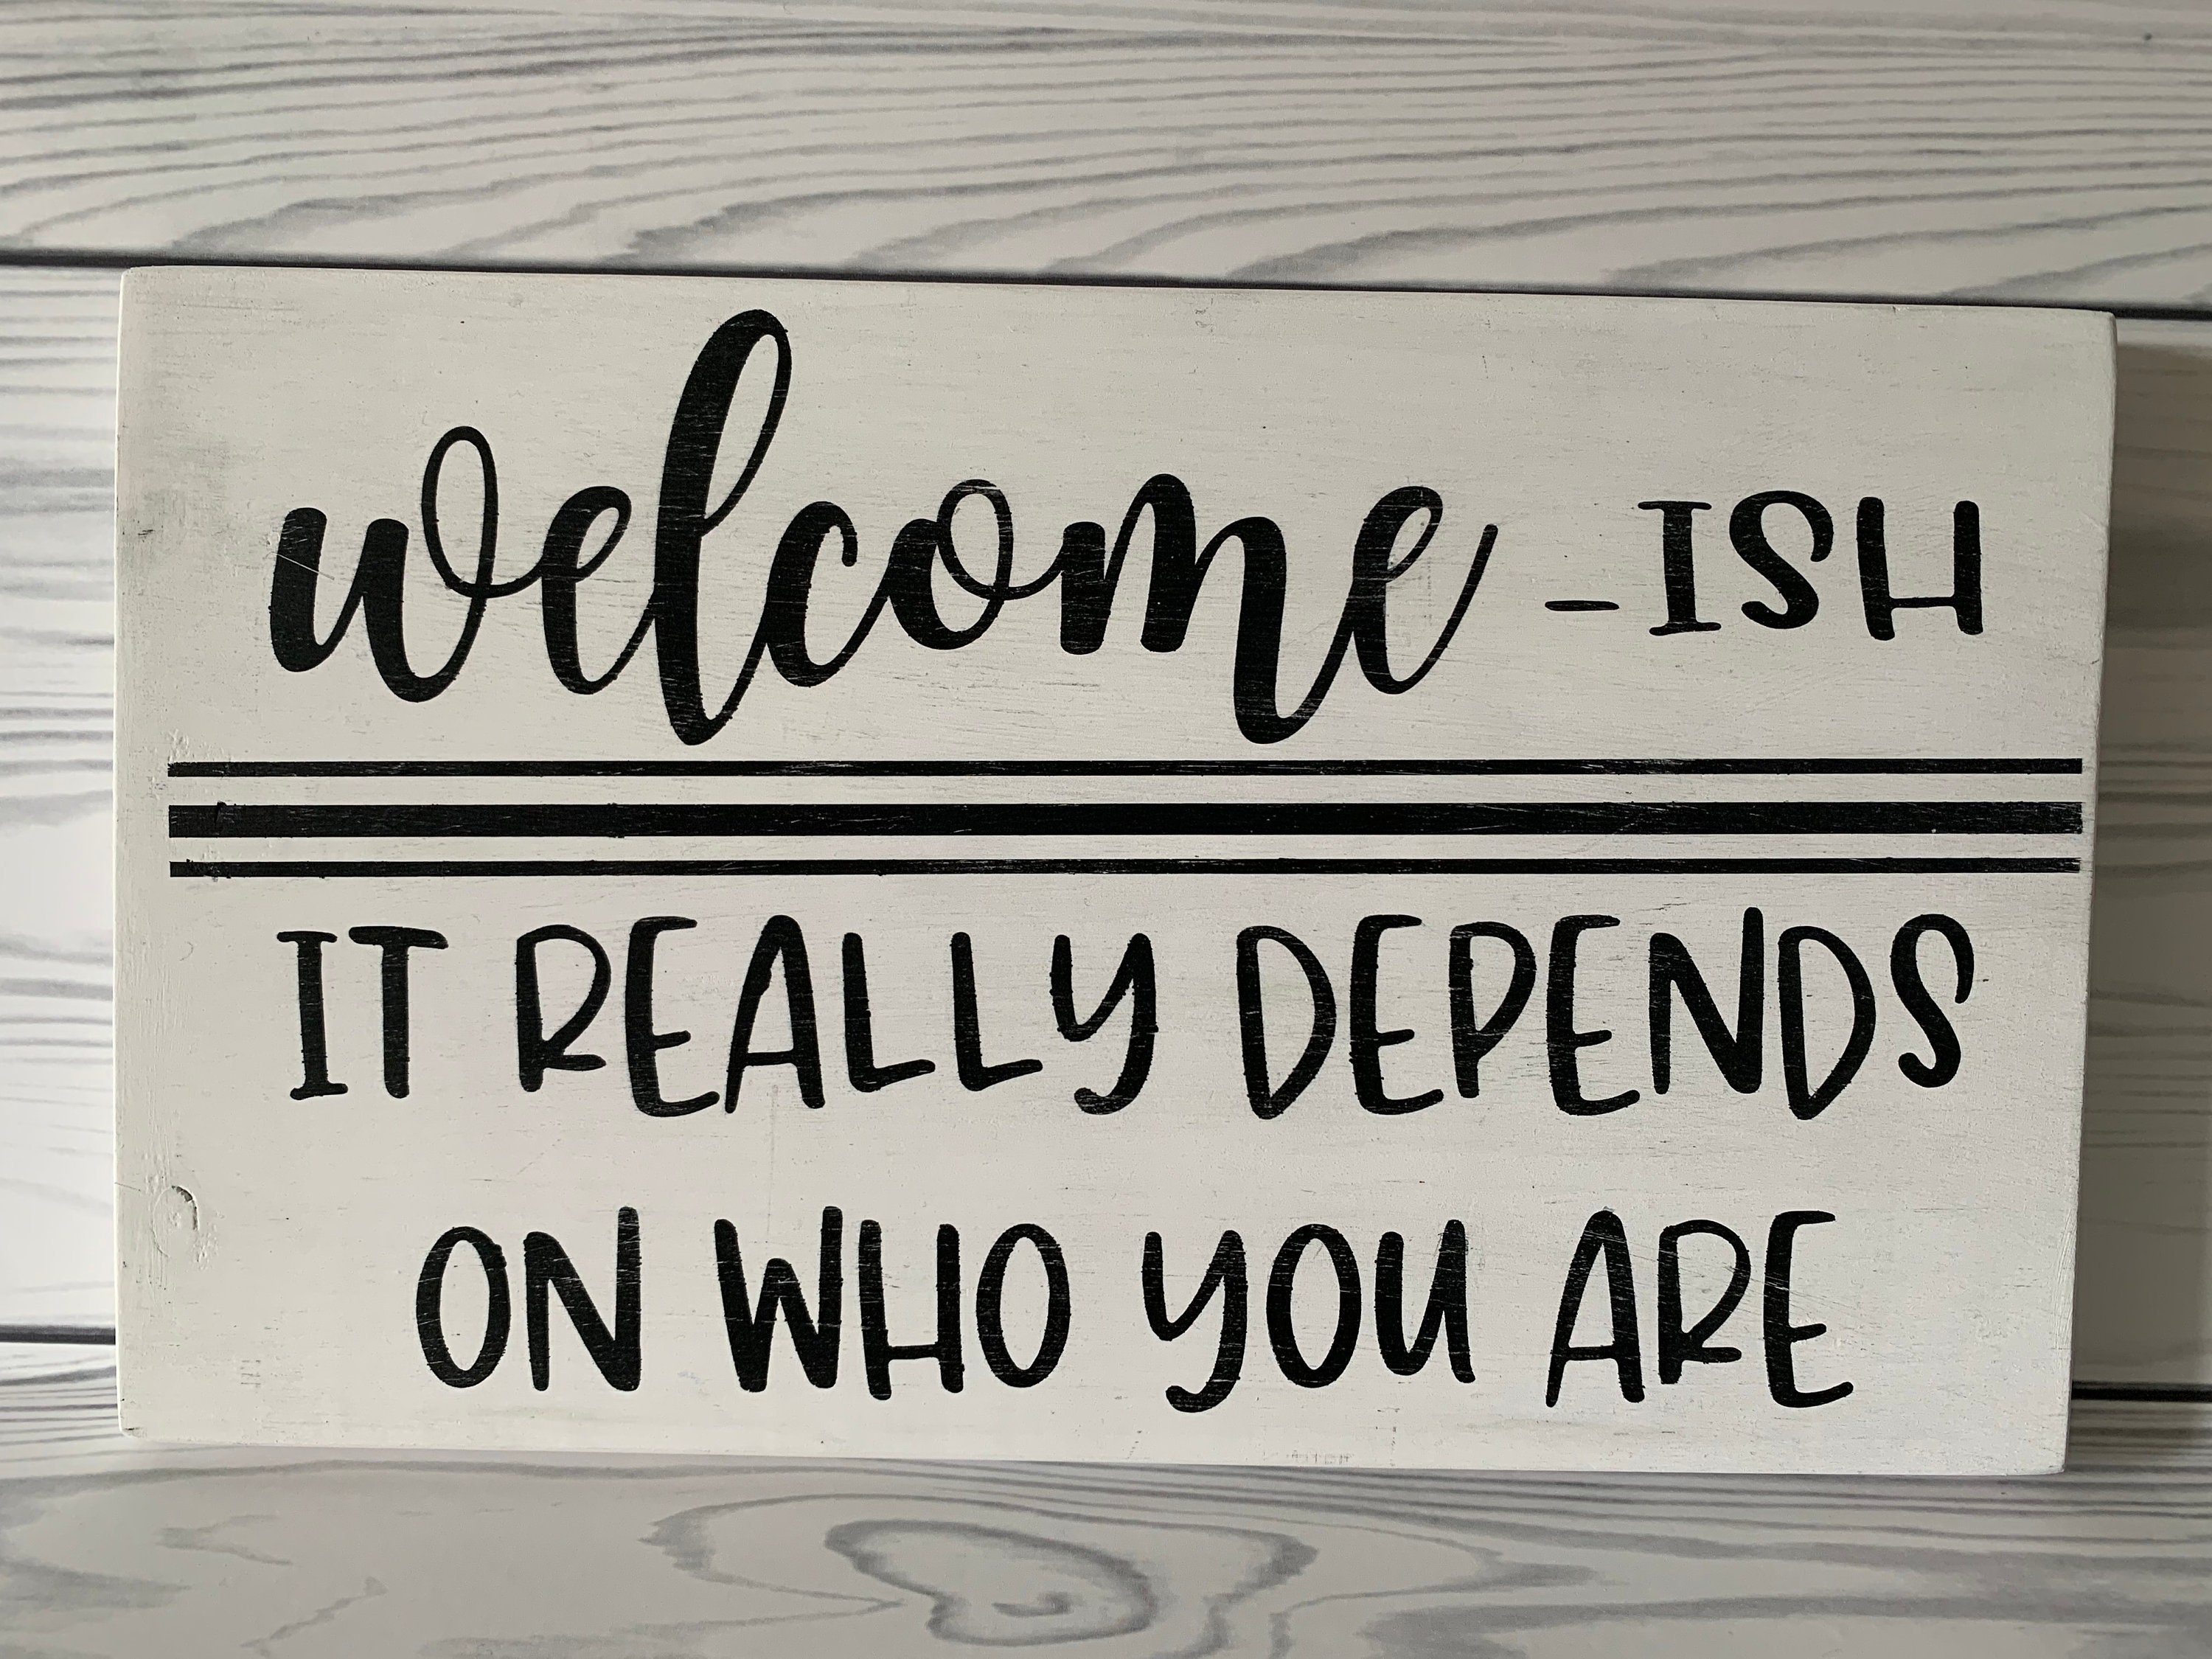 welcome -ISH
IT REALLY DEPENDS
ON WHO YOU ARE